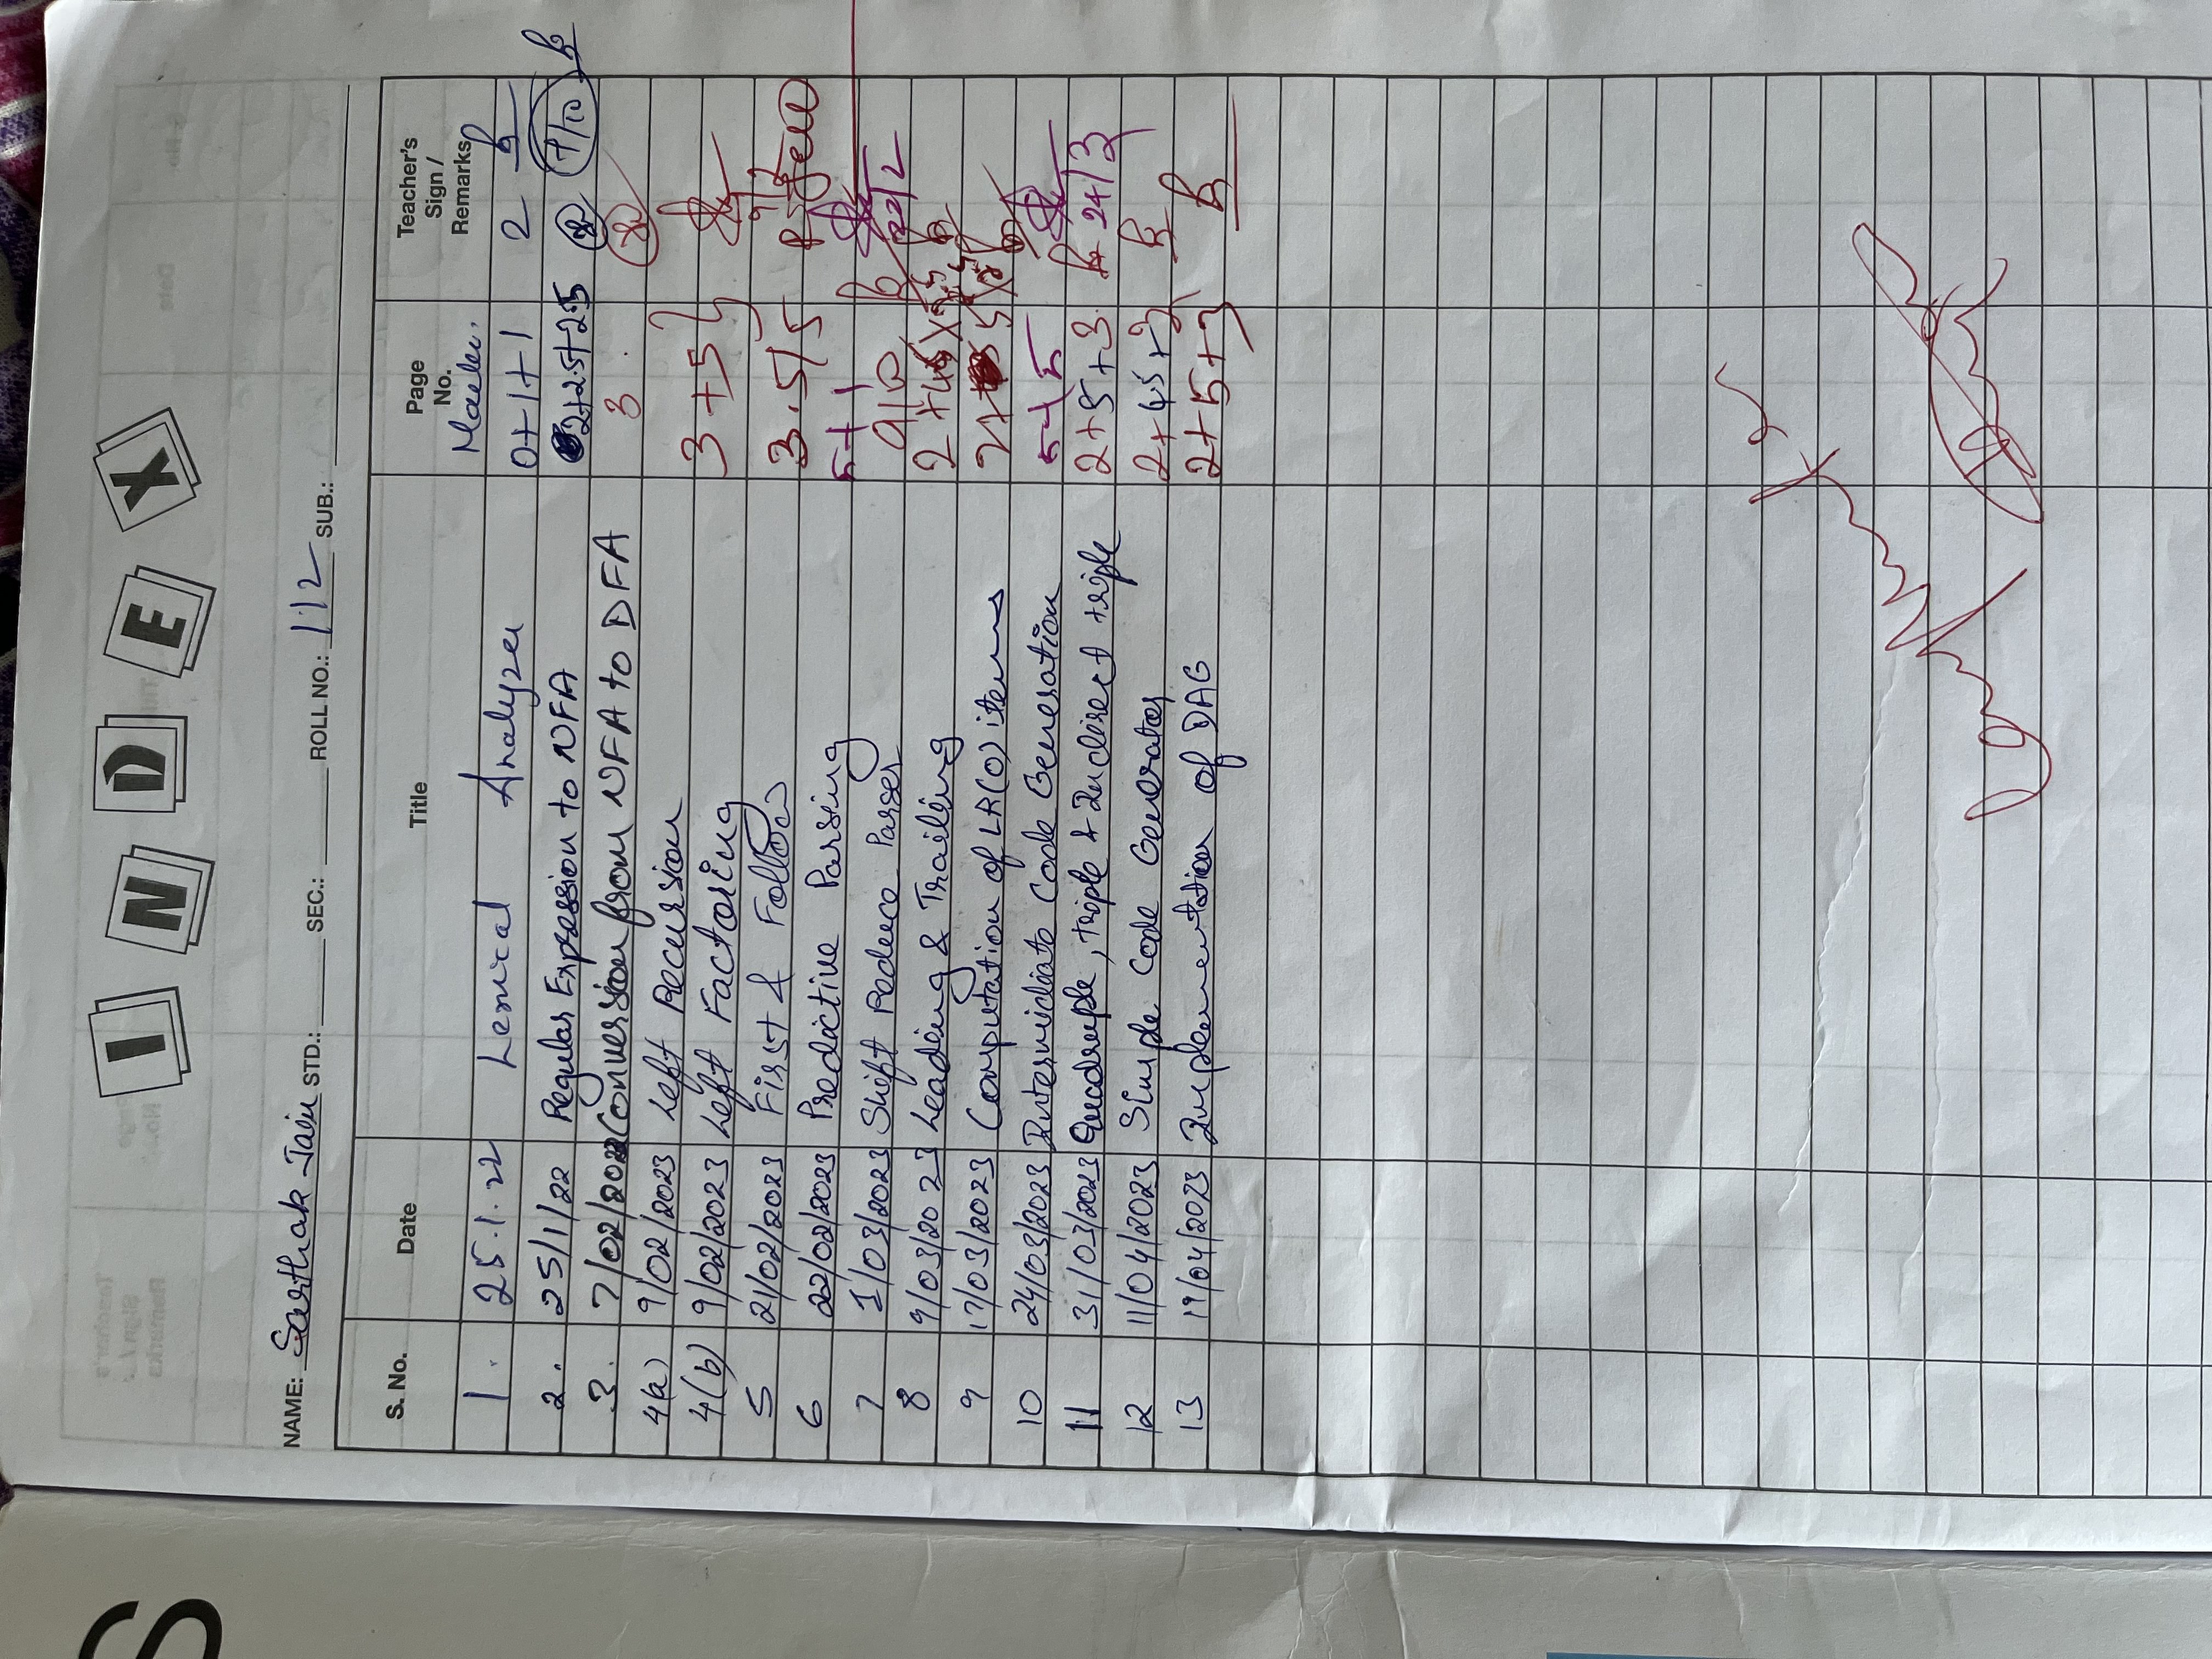 S
INDEX
NAME: Sarthak Jain STD.: SEC.: ROLL NO.: 112 SUB.:
S. No. Date Title Page No. Teacher's Sign / Remarks
1. 25.1.22 Lexical Analyzer 0+1+1 2
2. 25/1/22 Regular Expression to NFA 2+2.5+2.5 7/10
3. 7/02/2022 Conversion from NFA to DFA 3
4(a) 9/02/2023 Left Recursion
4(b) 9/02/2023 Left Factoring 3+5 9/2
5 21/02/2023 First & Follow 3.5/5
6 22/02/2023 Predictive Parsing 5+1 22/2
7 1/03/2023 Shift Reduce Parser 9/10
8 9/03/2023 Leading & Trailing
9 17/03/2023 Computation of LR(0) items
10 24/03/2023 Intermidiate Code Generation 5+5 24/3
11 31/03/2023 Quadruple, triple & Indirect triple 2+5+3
12 11/04/2023 Simple Code Generator 2+4.5+3
13 19/04/2023 Implementation of DAG 2+5+3